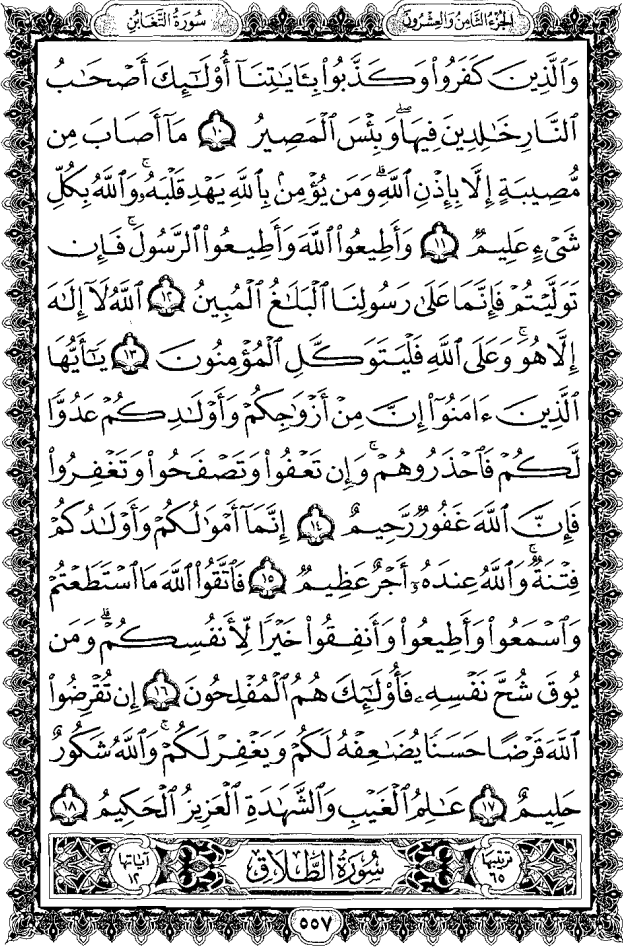 الجزء الثامن والعشرون
سورة التغابن
وَٱلَّذِينَ كَفَرُوا۟ وَكَذَّبُوا۟ بِـَٔايَـٰتِنَآ أُو۟لَـٰٓئِكَ أَصْحَـٰبُ
ٱلنَّارِ خَـٰلِدِينَ فِيهَا ۖ وَبِئْسَ ٱلْمَصِيرُ ١٠ مَآ أَصَابَ مِن
مُّصِيبَةٍ إِلَّا بِإِذْنِ ٱللَّهِ ۗ وَمَن يُؤْمِنۢ بِٱللَّهِ يَهْدِ قَلْبَهُۥ ۚ وَٱللَّهُ بِكُلِّ
شَىْءٍ عَلِيمٌ ١١ وَأَطِيعُوا۟ ٱللَّهَ وَأَطِيعُوا۟ ٱلرَّسُولَ ۚ فَإِن
تَوَلَّيْتُمْ فَإِنَّمَا عَلَىٰ رَسُولِنَا ٱلْبَلَـٰغُ ٱلْمُبِينُ ١٢ ٱللَّهُ لَآ إِلَـٰهَ
إِلَّا هُوَ ۚ وَعَلَى ٱللَّهِ فَلْيَتَوَكَّلِ ٱلْمُؤْمِنُونَ ١٣ يَـٰٓأَيُّهَا
ٱلَّذِينَ ءَامَنُوٓا۟ إِنَّ مِنْ أَزْوَٰجِكُمْ وَأَوْلَـٰدِكُمْ عَدُوًّا
لَّكُمْ فَٱحْذَرُوهُمْ ۚ وَإِن تَعْفُوا۟ وَتَصْفَحُوا۟ وَتَغْفِرُوا۟
فَإِنَّ ٱللَّهَ غَفُورٌ رَّحِيمٌ ١٤ إِنَّمَآ أَمْوَٰلُكُمْ وَأَوْلَـٰدُكُمْ
فِتْنَةٌ ۚ وَٱللَّهُ عِندَهُۥٓ أَجْرٌ عَظِيمٌ ١٥ فَٱتَّقُوا۟ ٱللَّهَ مَا ٱسْتَطَعْتُمْ
وَٱسْمَعُوا۟ وَأَطِيعُوا۟ وَأَنفِقُوا۟ خَيْرًا لِّأَنفُسِكُمْ ۗ وَمَن
يُوقَ شُحَّ نَفْسِهِۦ فَأُو۟لَـٰٓئِكَ هُمُ ٱلْمُفْلِحُونَ ١٦ إِن تُقْرِضُوا۟
ٱللَّهَ قَرْضًا حَسَنًا يُضَـٰعِفْهُ لَكُمْ وَيَغْفِرْ لَكُمْ ۚ وَٱللَّهُ شَكُورٌ
حَلِيمٌ ١٧ عَـٰلِمُ ٱلْغَيْبِ وَٱلشَّهَـٰدَةِ ٱلْعَزِيزُ ٱلْحَكِيمُ ١٨
ترتيبها ٦٥ سورة الطلاق آياتها ١٢
٥٥٧